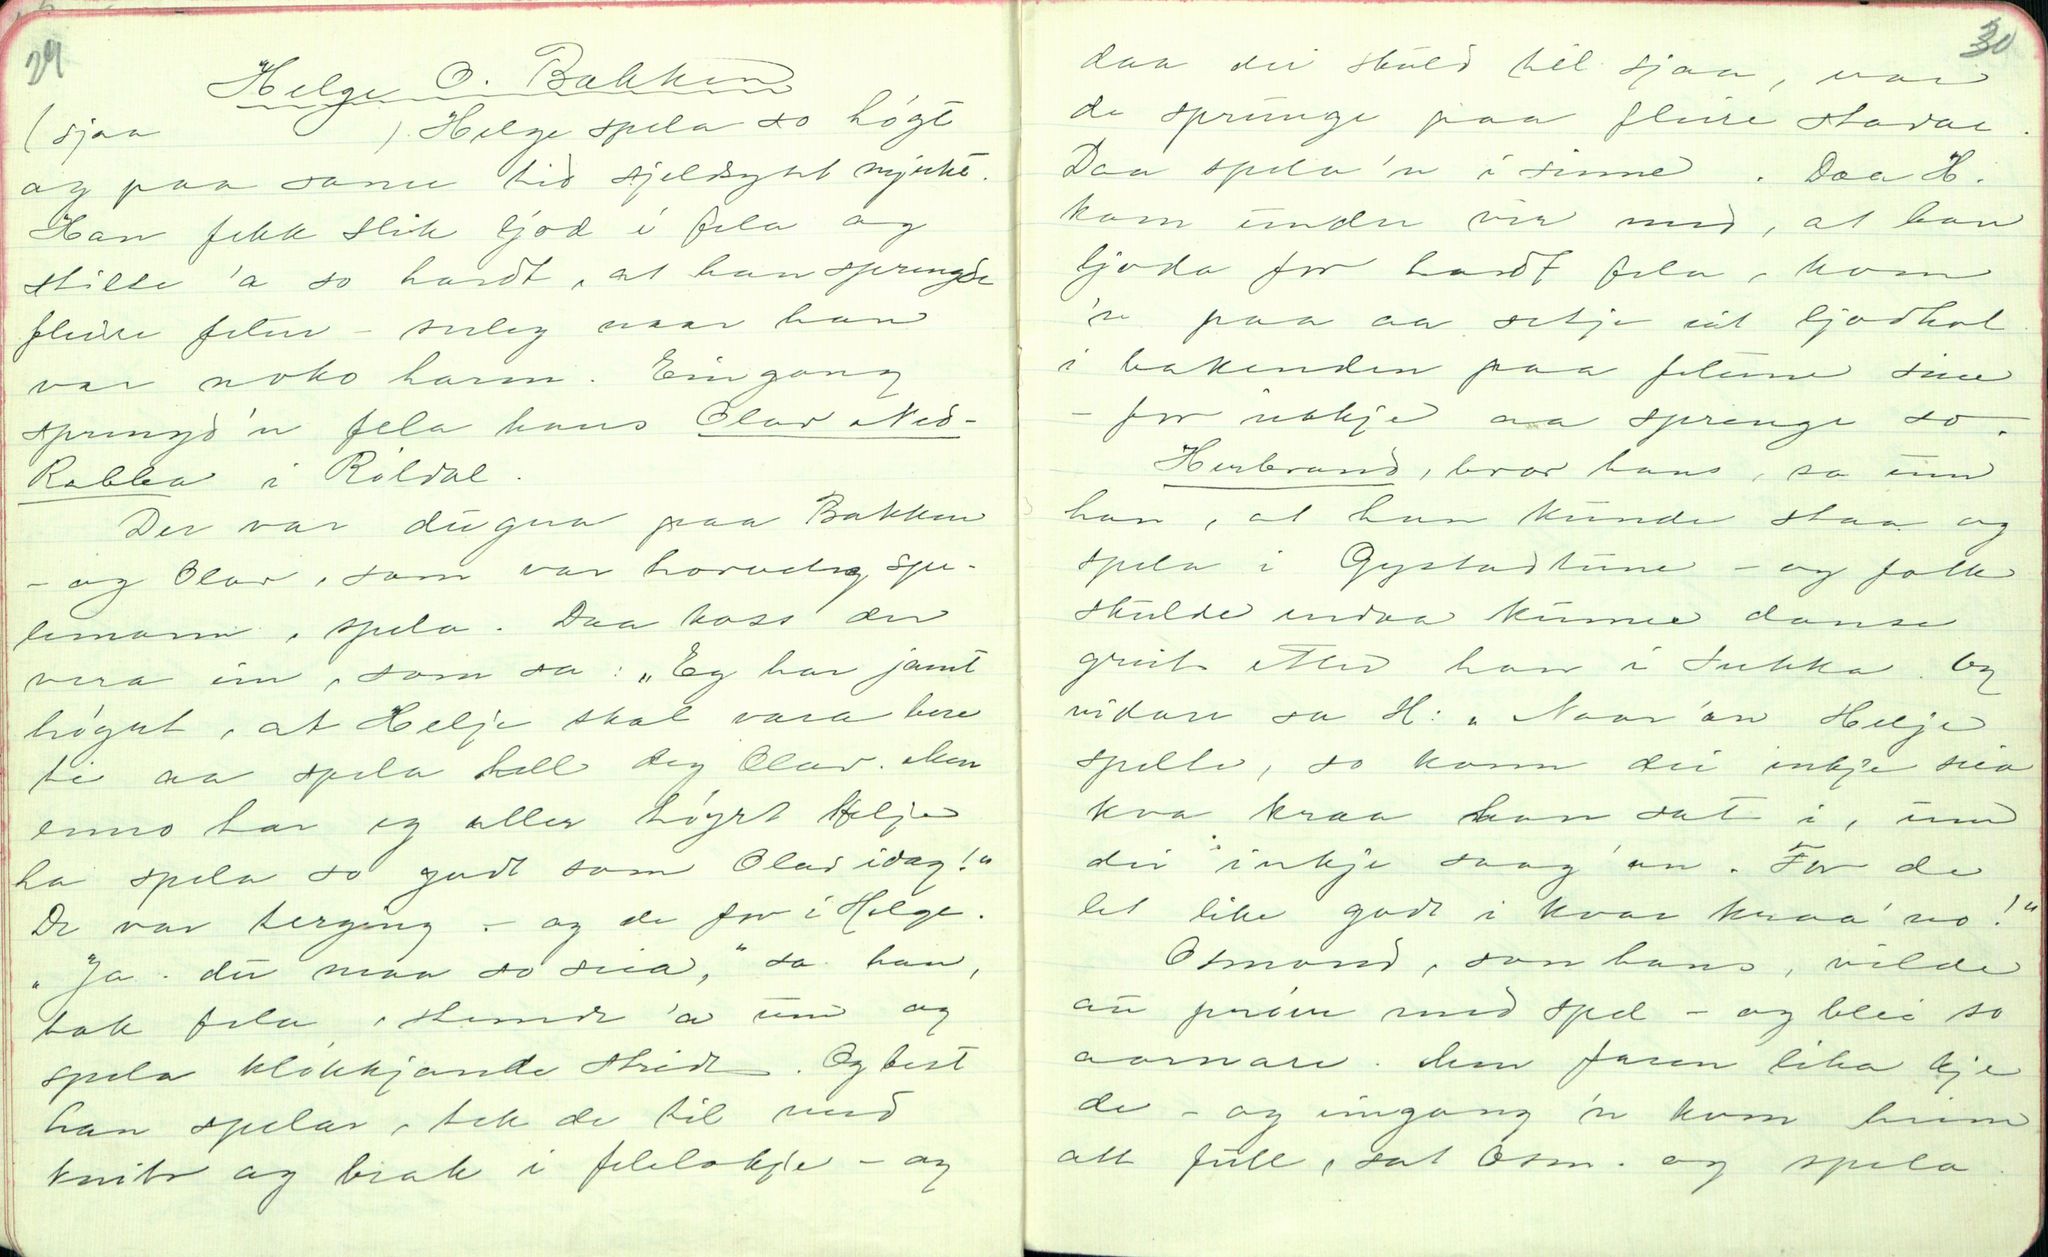 29
Helge O. Bakken
(sjaa ). Helge spela so høgt
og paa same tid sjeldsynt mjukt.
Han fekk slik ljod i fela og
stilte 'a so hardt, at han sprengde
fleire felur - serleg naar han
var noko harm. Eingong
sprengd'n fela hans Olav Ned-
Rabba i Røldal.
Der var dugna paa Bakken
- og Olav, som var hovudeg spe-
lemann, spela. Daa koss der
vera ein, som sa: „Eg har jamt
høyrt, at Helje skal vara bere
te aa spela hell deg Olav. Men
enno har eg aller høyrt Helje
ha spela so godt som Olav idag!"
De var terging - og de for i Helge.
„Ja. du maa so seia," sa han,
tok fela, stemde 'a um og
spela kløkkjande stridt. Og best
han spelar, tek de til med
knitr og brak i felelokje - og
30
daa dei skuld til sjaa, var
de sprunge paa fleire stadar.
Daa spela'n i sinne. Daa H.
kom under vêr med, at han
ljoda for hardt fela, kom
'n paa aa setje eit ljodhol
i bakenden paa felune sine
- for inkje aa sprenge so.
Herbrand, bror hans, sa um
han, at han kunde staa og
spela i Gystadtune - og folk
skulde endaa kunne danse
greit etter han i Sukka. Og
vidare sa H: „Naar 'an Helje
spelte, so kann dei inkje seia
kva kraa han sat i, um
dei inkje saag 'an. For de
let like godt i kvar kraa 'no!"
Osmond, son hans, vilde
au prøve med spel - og blei so
aornare. Men faren lika kje
de - og eingong 'n kom heim
att full, sat Osm. og spela